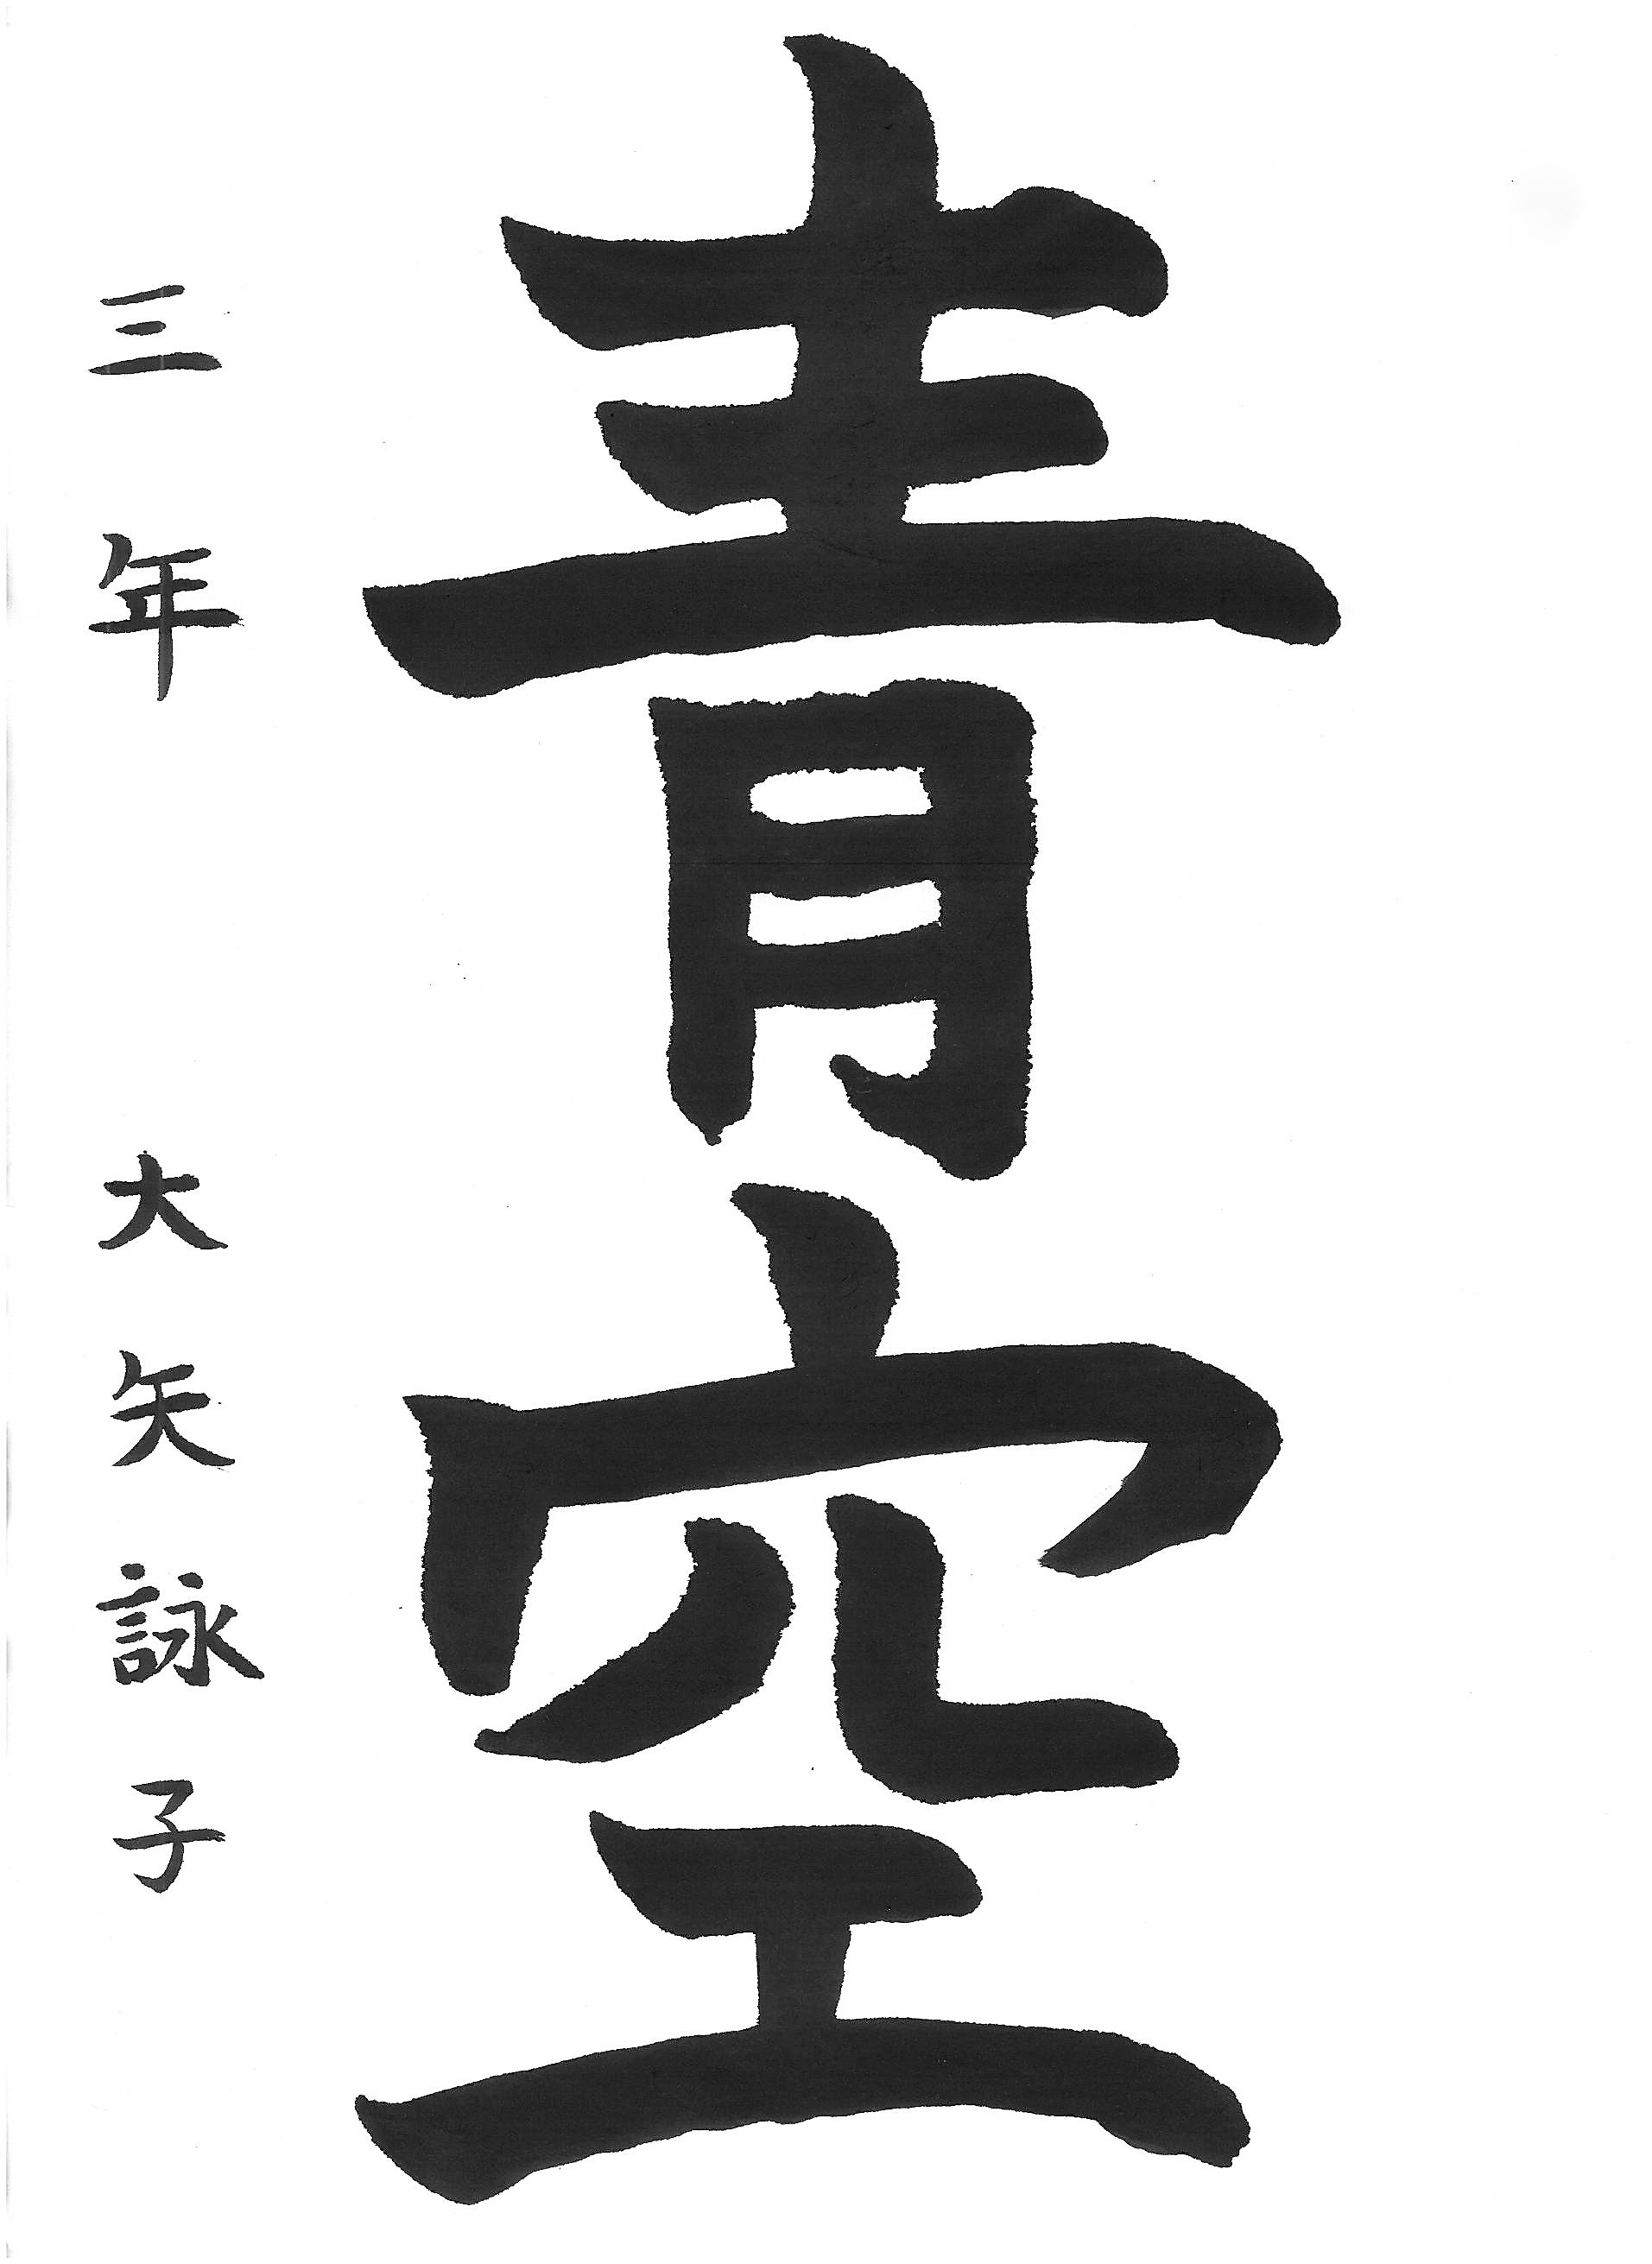 青空
三年 大矢詠子